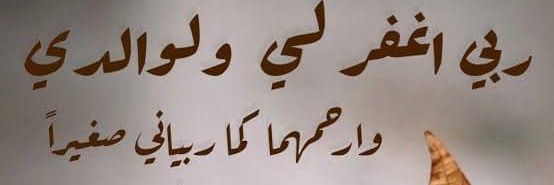 ربي اغفر لي ولوالدي
وارحمهما كما ربياني صغيراً